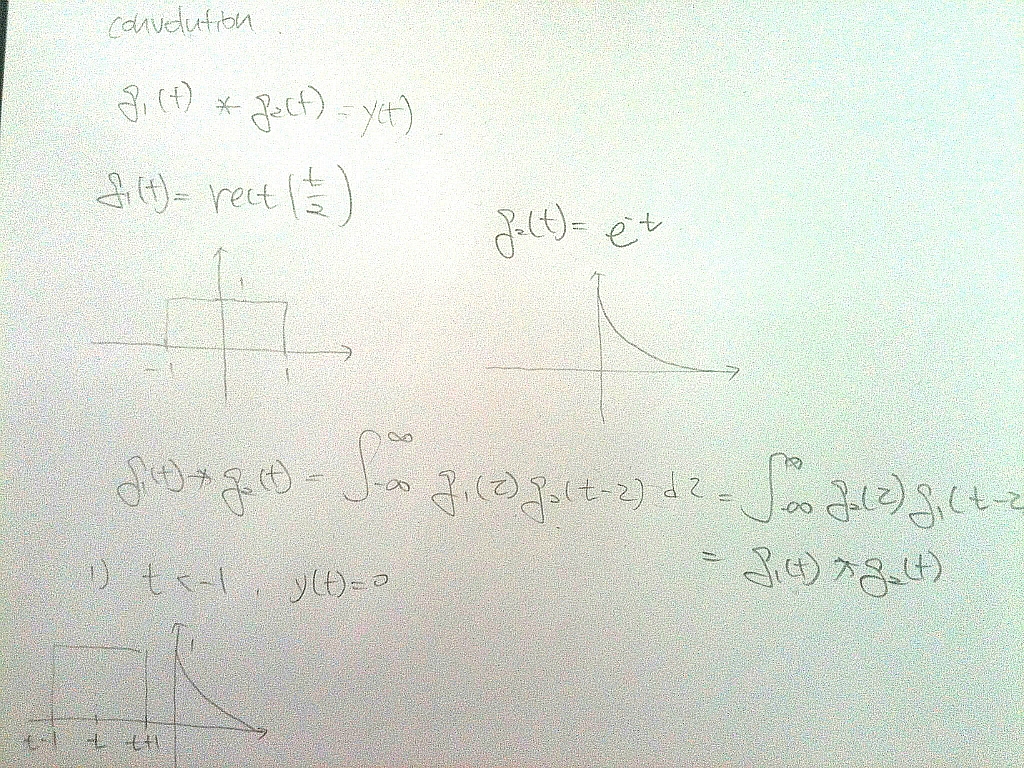 convolution.
g₁(t) * g₂(t) = y(t)
g₁(t) = rect(t/2)
g₂(t) = e^-t
1
-1 1
g₁(t) * g₂(t) = ∫-∞^∞ g₁(τ) g₂(t-τ) dτ = ∫-∞^∞ g₂(τ) g₁(t-τ
= g₁(t) * g₂(t)
1) t < -1, y(t)=0
1
t-1 t t+1